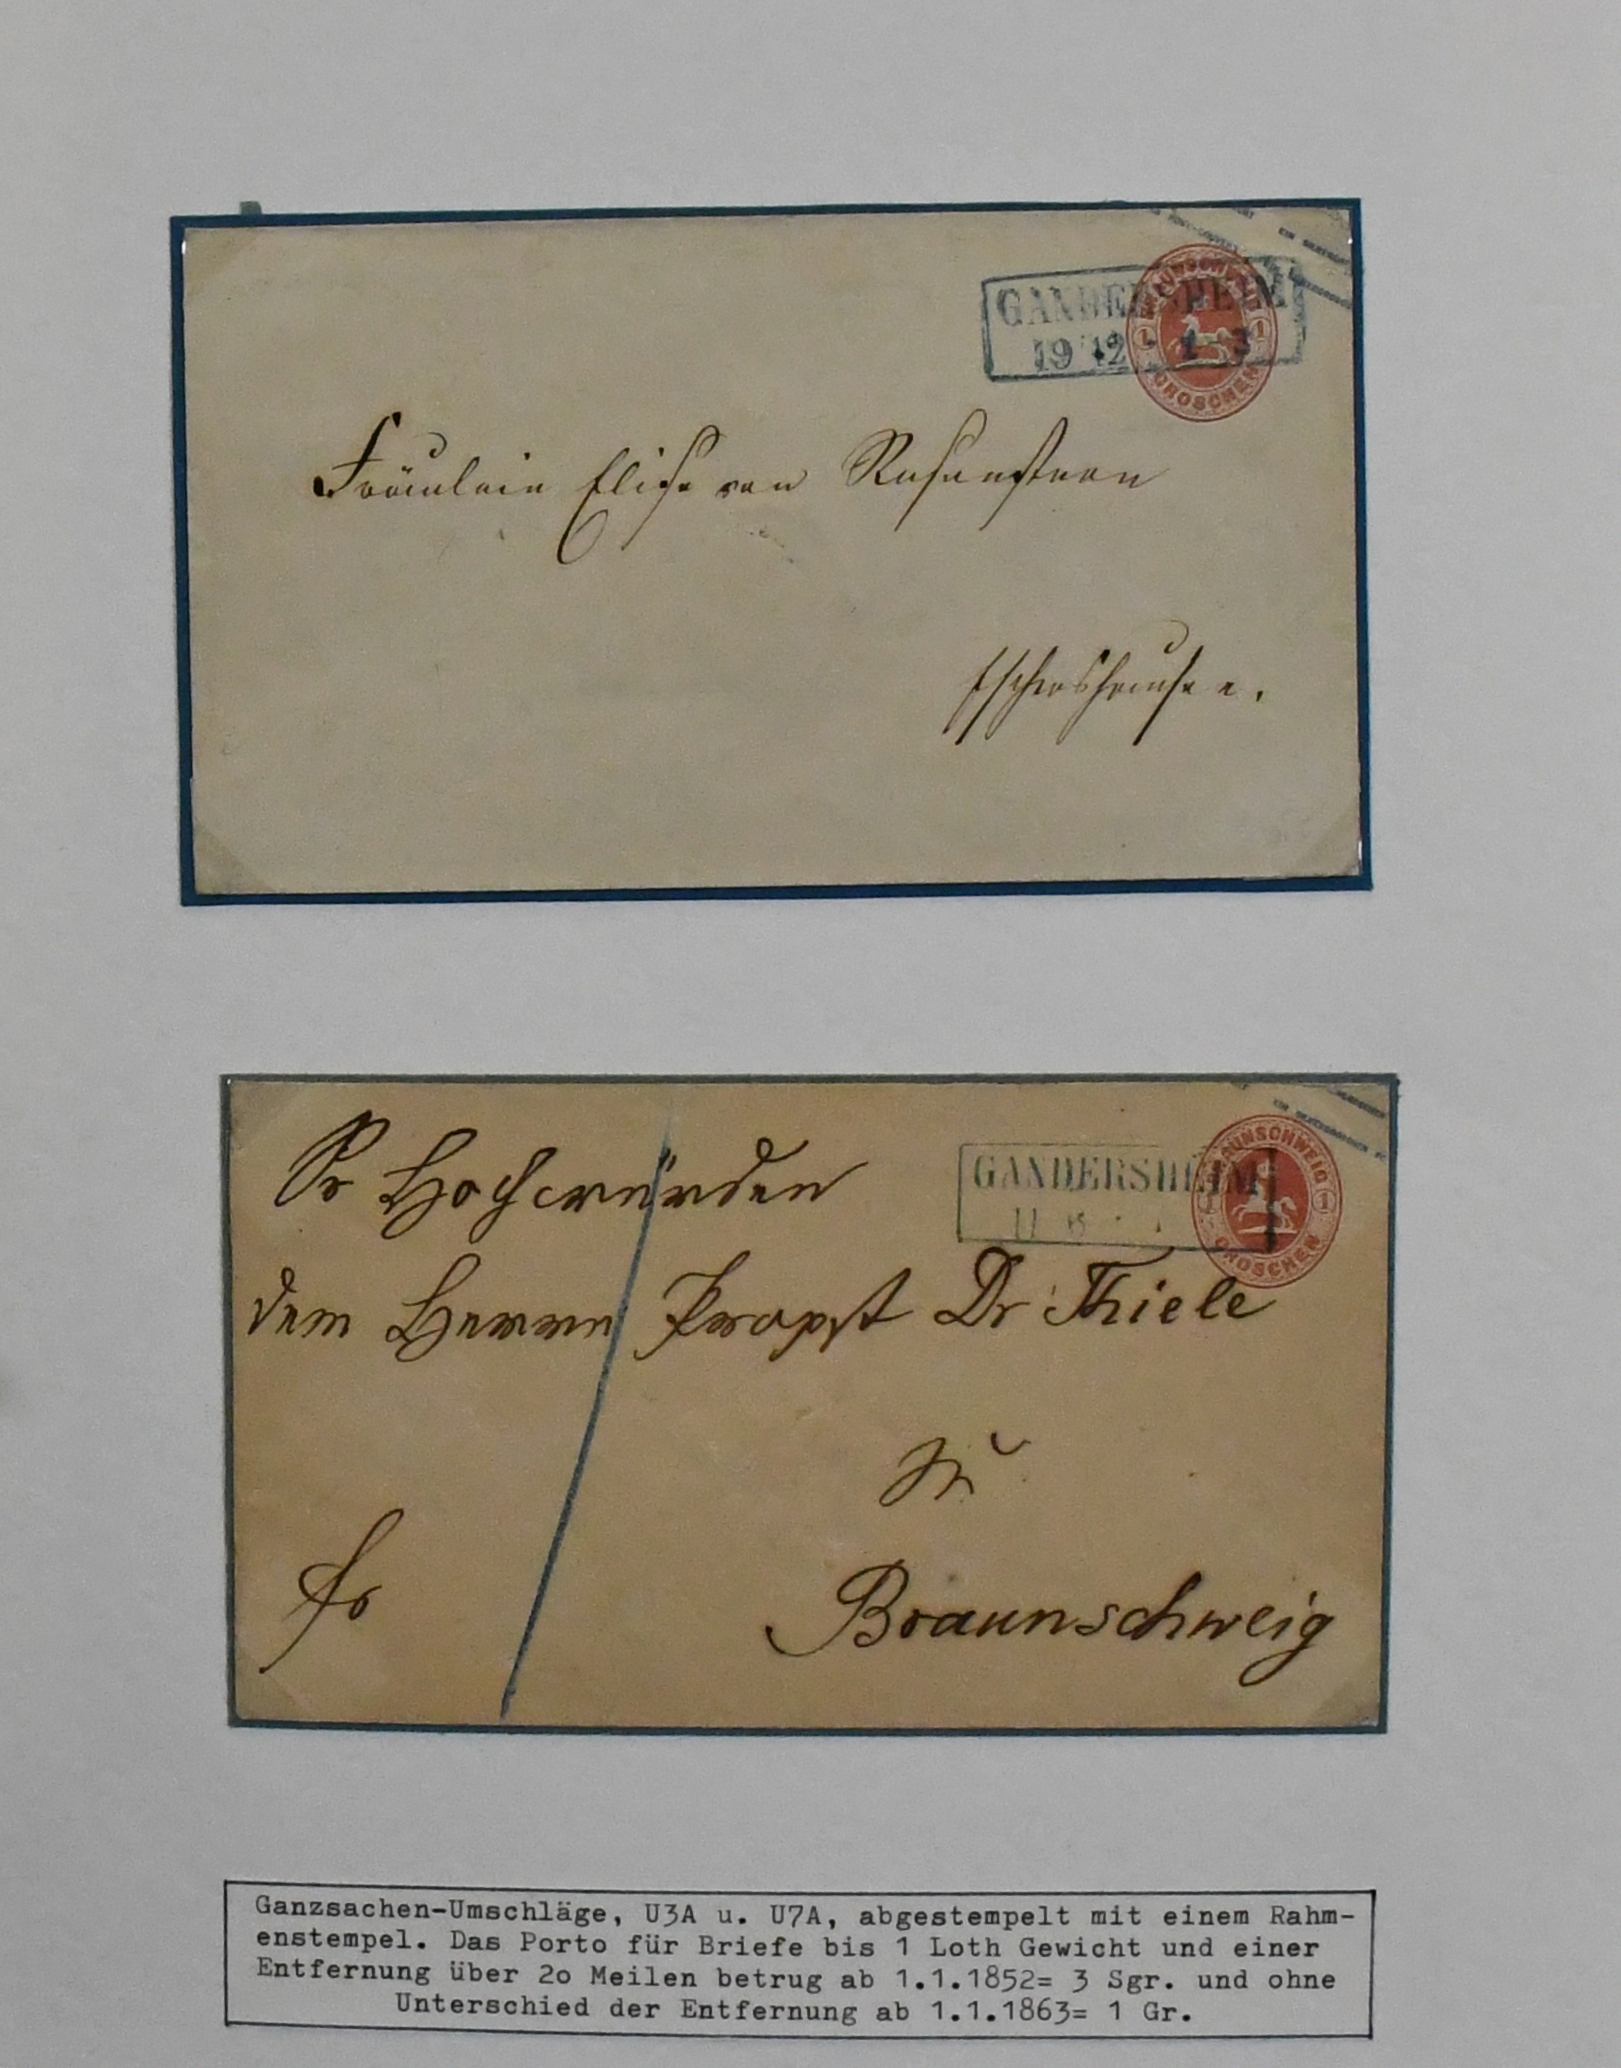 GANDERSHEIM
19 12 1-3
BRAUNSCHWEIG
1 1
GROSCHEN
Fräulein Elise von Rosenstern
Eschershausen.
GANDERSHEIM
11
BRAUNSCHWEIG
1
GROSCHEN
Sr Hochwürden
dem Herrn Propst Dr Thiele
zu
fr
Braunschweig
Ganzsachen-Umschläge, U3A u. U7A, abgestempelt mit einem Rahm-
enstempel. Das Porto für Briefe bis 1 Loth Gewicht und einer
Entfernung über 2o Meilen betrug ab 1.1.1852= 3 Sgr. und ohne
Unterschied der Entfernung ab 1.1.1863= 1 Gr.